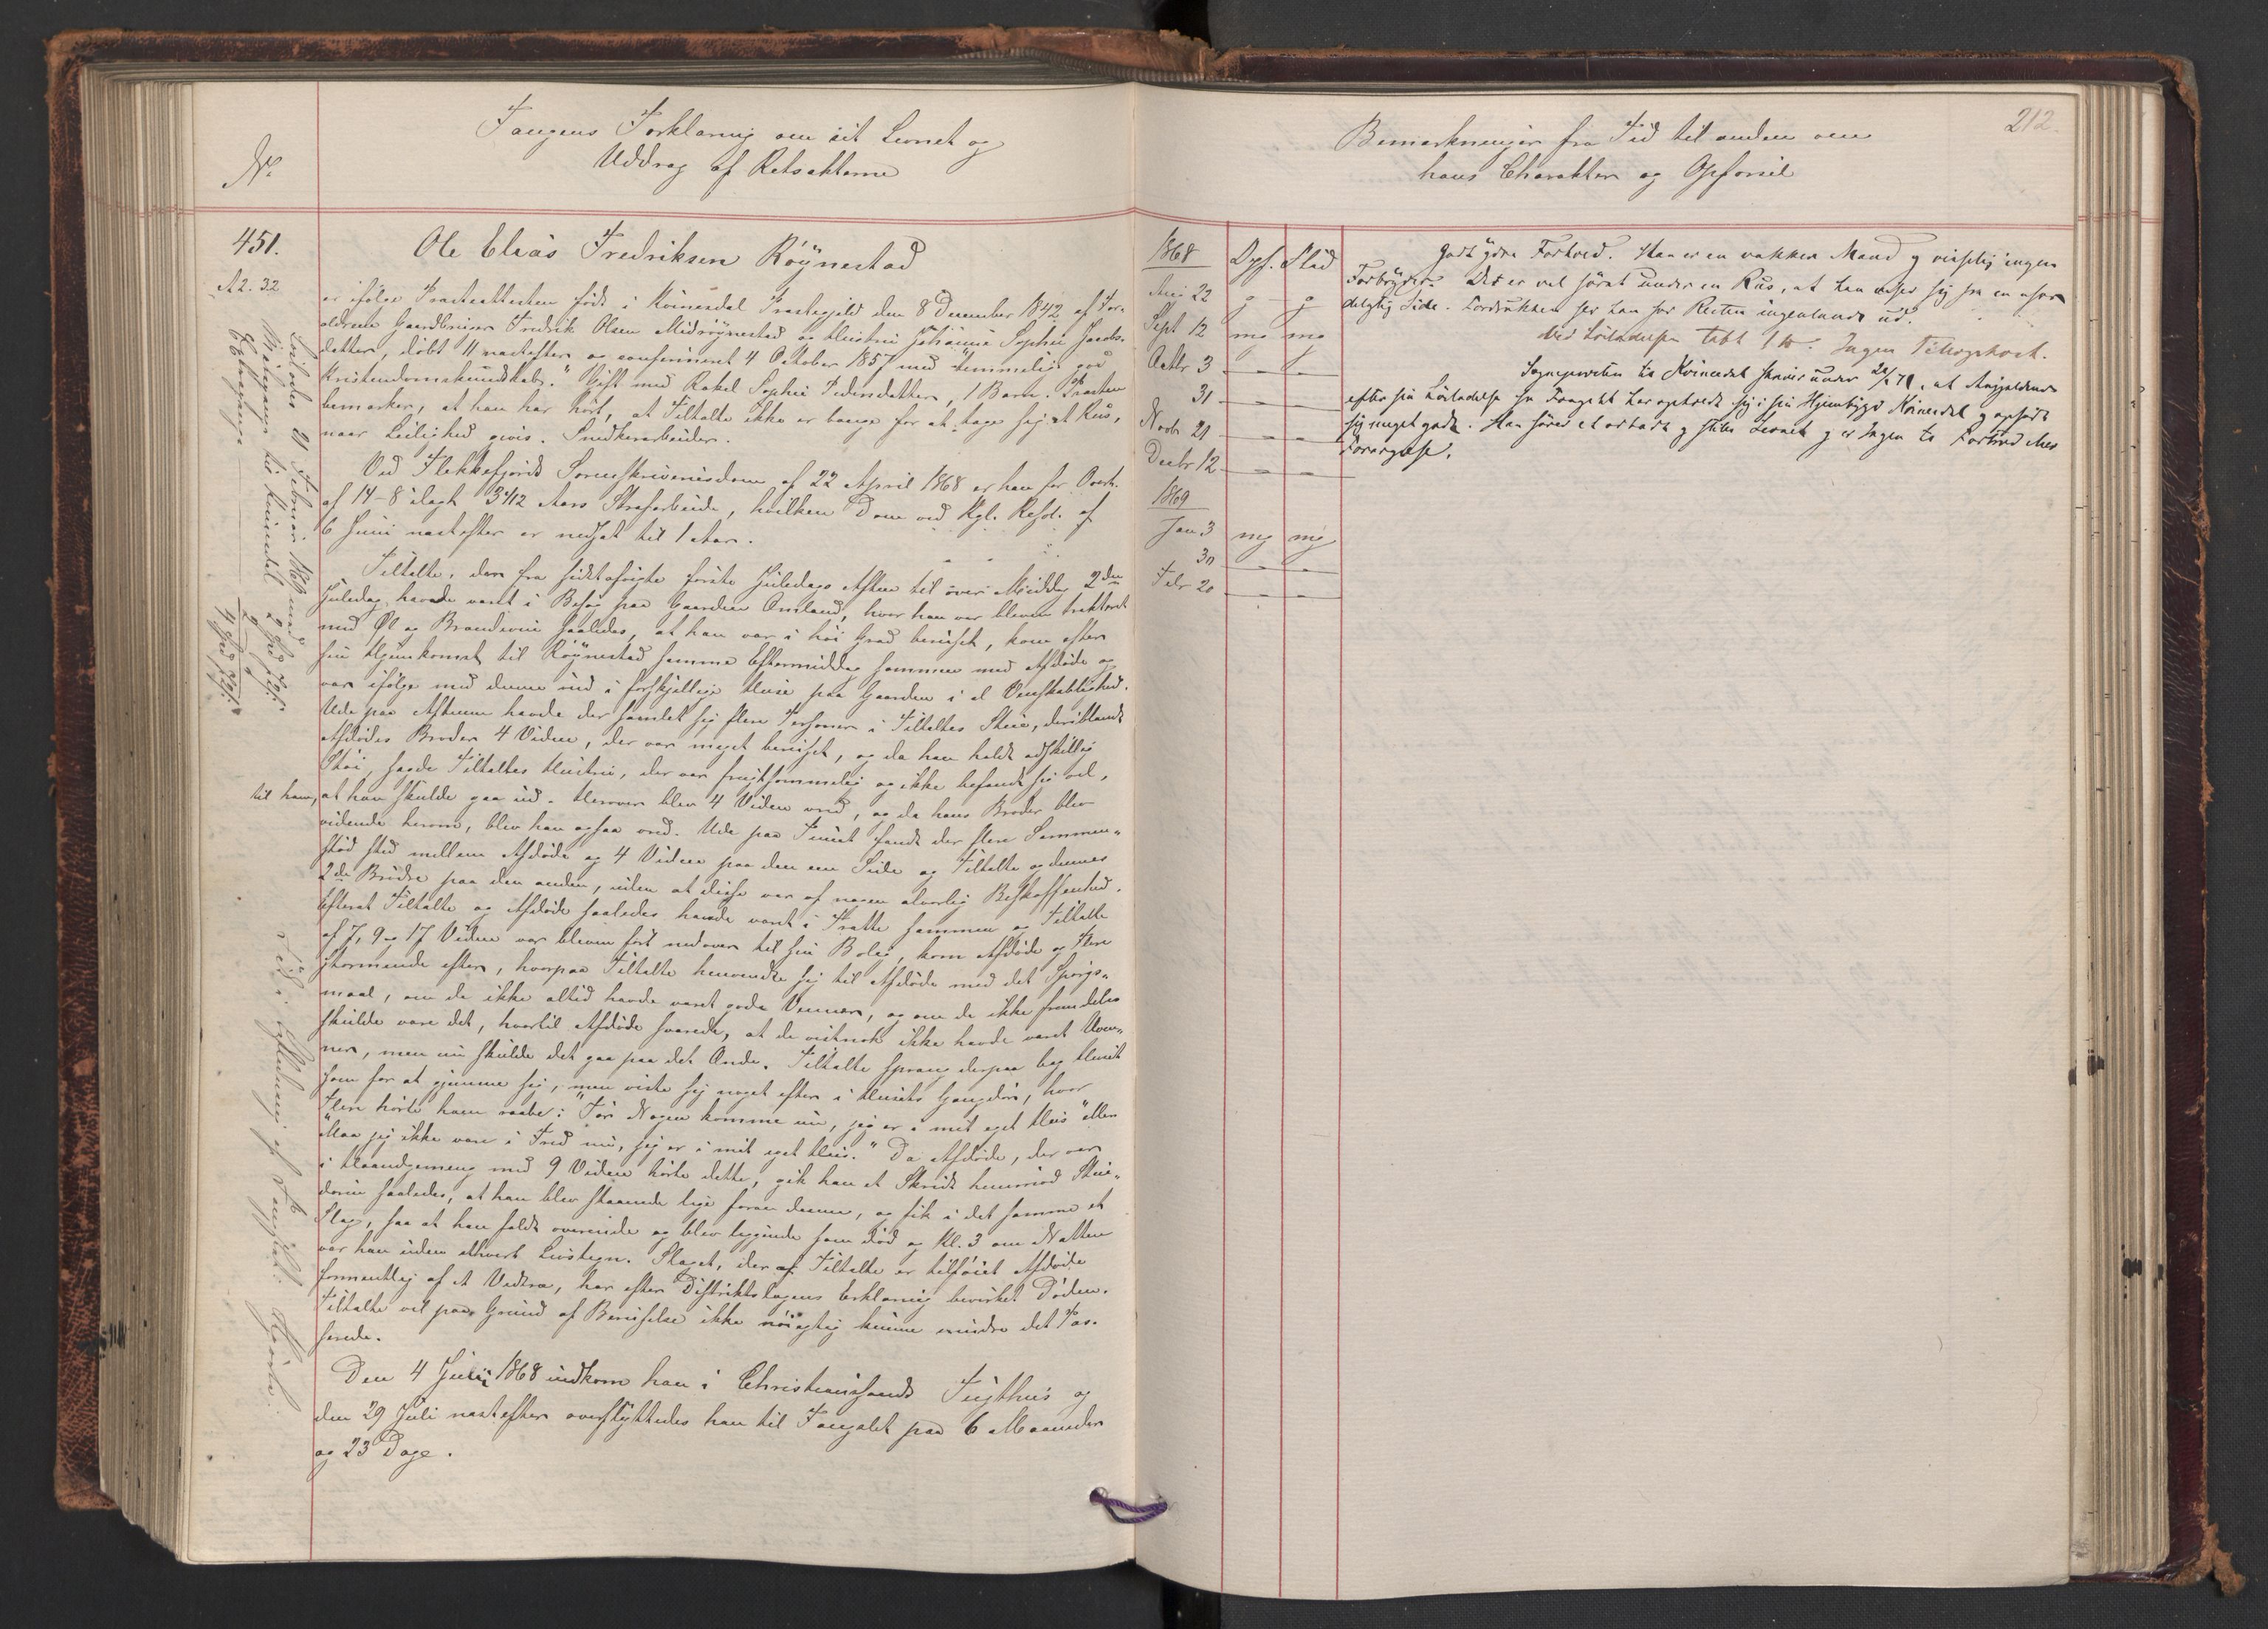 No
Fangens Forklaring om sit Levnet og
Uddrag af Retsakterne
451.
A2. 32
Ole Elias Fredriksen Röÿnestad
er ifölge Præsteattesten födt i Kvinesdal Præstegjeld den 8 December 1842 af For-
ældrene Gaardbruger Fredrik Olsen Midröÿnestad og Hustru Johanne Sophie Jacobs-
datter, döbt 11 næstefter og confirmeret 4 Oktober 1857 med "temmelig god
Kristendomskundskab." Gift med Rakel Sophie Pedersdatter, 1 Barn. Præsten
bemærker, at han har hört, at Tiltalte ikke er bange for at tage sig et Rus,
naar Leilighed givis. Snedkerarbeider.
Ved Flekkefjords Sorenskriverisdom af 22 April 1868 er han for Overtr.
af 14-8 ilagt 3 4/12 Aars Strafarbeide, hvilken Dom ved Kgl. Resol. af
6 Juni næstefter er nedsat til 1 Aar.
Tiltalte, der fra sidstafvigte förste Juledags Aften til over Middag 2den
Juledag havde været i Besög paa Gaarden Omland, hvor han var bleven trakteret
med Øl og Brændeviin saaledes, at han var i höi Grad beruset, kom efter
sin Hjemkomst til Röÿnestad samme Eftermiddag sammen med Afdöde og
var ifölge med denne ind i forskjellige Huse paa Gaarden i al Venskabelighed.
Ude paa Aftenen havde der samlet sig flere Personer i Tiltaltes Stue, deriblandt
Afdödes Broder 4 Vidne, der var meget beruset, og da han holdt adskillig
Støi, sagde Tiltaltes Hustru, der var frugtsommelig og ikke befandt sig vel,
til ham, at han skulde gaa ud. Herover blev 4 Vidne vred, og da hans Broder blev
vidende herom, blev han ogsaa vred. Ude paa Tunet fandt der flere Sammen-
stöd sted mellem Afdöde og 4 Vidne paa den ene Side og Tiltalte og dennes
2de Brödre paa den anden, uden at disse var af nogen alvorlig Beskaffenhed.
Efterat Tiltalte og Afdöde saaledes havde været i Trætte sammen og Tiltalte
af 7, 9 og 17 Vidne var bleven fört nedover til sin Bolig, kom Afdöde og Flere
stormende efter, hvorpaa Tiltalte henvendte sig til Afdöde med det Spörgs-
maal, om de ikke altid havde været gode Venner, og om de ikke fremdeles
skulde være det, hvortil Afdöde svarede, at de vistnok ikke havde været Uven-
ner, men nu skulde det gaa paa det Onde. Tiltalte sprang derpaa bag Huset
som for at gjemme sig, men viste sig noget efter i Husets Gangdör, hvor
Flere hörte ham raabe: "Tör Nogen komme nu, jeg er i mit eget Hus" eller
"Maa jeg ikke være i Fred nu, jeg er i mit eget Hus." Da Afdöde, der var
i Haandgemeng med 9 Vidne hörte dette, gik han et Skridt henimod Stue-
dören saaledes, at han blev staaende lige foran denne, og fik i det samme et
Slag, saa at han faldt overende og blev liggende som död og Kl. 3 om Natten
var han uden ethvert Livstegn. Slaget, der af Tiltalte er tilföiet Afdöde
formentlig af et Vedtræ, har efter Distriktslægens Erklæring bevirket Döden.
Tiltalte vil paa Grund af Beruselse ikke nöiagtig kunne erindre det Pas-
serede.
Den 4 Juli 1868 indkom han i Christianssands Tugthus og
den 29 Juli næstefter overflyttedes han til Fængslet paa 6 Maaneder
og 23 Dage.
Löslodes 21 Februar 1869 med
Reisepenge til Kvinesdal 2 Spd
Bemærkninger fra Tid til anden om
hans Charakter og Opførsel
212.
1868 Opf. Flid
Aug 22 g g
Sept 12 mg mg
Octbr 3 - -
31 - -
Novbr 21 - -
Decbr 12 - -
1869
Jan 3 mg mg
30 - -
Febr 20 - -
Godt ydre Forhold. Han er en vakker Mand og virkelig ingen
Forbryder. Det er vel hændt under en Rus, at han viser sig fra en ufor-
delagtig Side. Fordrukken ser han for Resten ingenlunde ud.
Ved Lösladelsen tabt 1 tb. Ingen Tilvæxt.
Sognepresten til Kvinesdal skriver under 20/1 71, at Angjeldende
efter sin Lösladelse fra Fængslet har opholdt sig i sin Hjembygd Kvinesdal og opført
sig meget godt. Han förer et ædru og stille Levnet og er Ingen til Fortred eller
Forargelse.